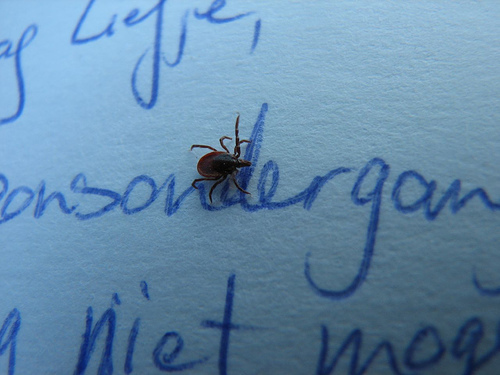 ag Liefje,
onsondergan
g niet mog